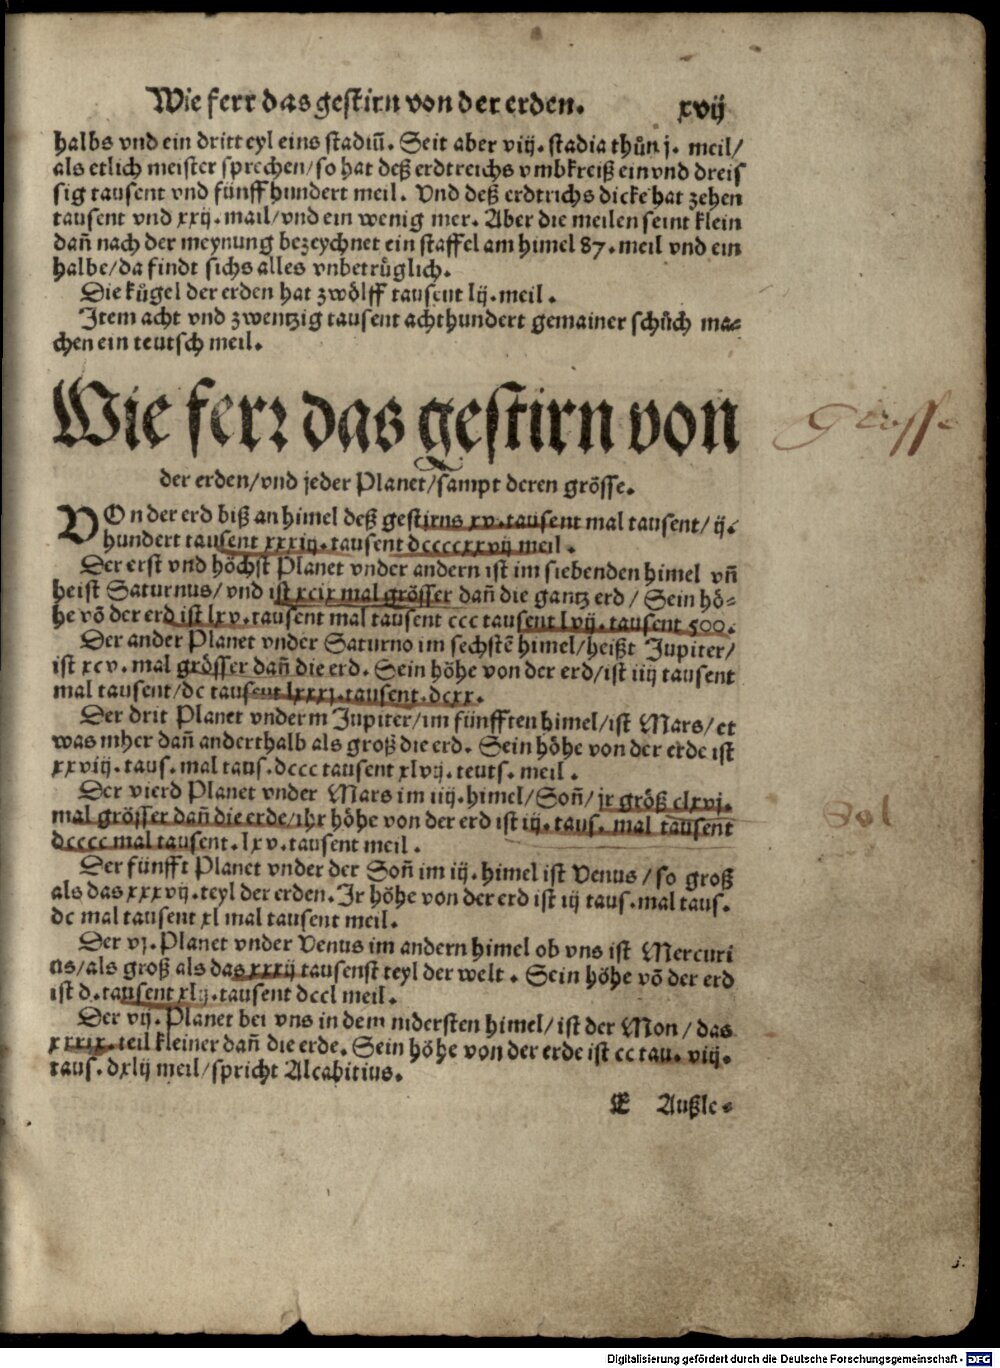 Wie ferr das gestirn von der erden. xvij
halbs vnd ein dritteyl eins stadiū. Seit aber viij. stadia thůn j. meil/
als etlich meister sprechen/so hat deß erdtreichs vmbkreiß ein vnd dreis
sig tausent vnd fünff hundert meil. Vnd deß erdtrichs dicke hat zehen
tausent vnd xxij. mail/vnd ein wenig mer. Aber die meilen seint klein
dañ nach der meynung bezeychnet ein staffel am himel 87. meil vnd ein
halbe/da findt sichs alles vnbetrüglich.
Die kůgel der erden hat zwölff tausent lij. meil.
Item acht vnd zwentzig tausent achthundert gemainer schůch ma⸗
chen ein teutsch meil.
Wie ferr das gestirn von
grosse
der erden/vnd jeder Planet/sampt deren grösse.
VOn der erd biß an himel deß gestirns xv. tausent mal tausent/ ij.
hundert tausent xxxiij. tausent dccccxxvij meil.
Der erst vnd höchst Planet vnder andern ist im siebenden himel vñ
heist Saturnus/ vnd ist xcix mal grösser dañ die gantz erd/ Sein hö⸗
he võ der erd ist lxv. tausent mal tausent ccc tausent lvij. tausent 500.
Der ander Planet vnder Saturno im sechstē himel/heißt Jupiter/
ist xcv. mal grösser dañ die erd. Sein höhe von der erd/ist iiij tausent
mal tausent/dc tausent lxxxj. tausent. dcxx.
Der drit Planet vnderm Jupiter/im fünfften himel/ist Mars/et
was mher dañ anderthalb als groß die erd. Sein höhe von der erde ist
xxviij. taus. mal taus. dccc tausent xlvij. teuts. meil.
Der vierd Planet vnder Mars im iiij. himel/Soñ/ jr größ clxvj.
mal grösser dañ die erde/ihr höhe von der erd ist iij. taus. mal tausent
Sol
dcccc mal tausent. lxv. tausent meil.
Der fünfft Planet vnder der Soñ im iij. himel ist Venus/ so groß
als das xxxvij. teyl der erden. Ir höhe von der erd ist iij taus. mal taus.
dc mal tausent xl mal tausent meil.
Der vj. Planet vnder Venus im andern himel ob vns ist Mercuri
us/als groß als das xxxij tausenst teyl der welt. Sein höhe võ der erd
ist d. tausent xlij. tausent dccl meil.
Der vij. Planet bei vns in dem nidersten himel/ ist der Mon/ das
xxxix. teil kleiner dañ die erde. Sein höhe von der erde ist cc tau. viij.
taus. dxlij meil/spricht Alcabitius.
E Außle⸗
j.
Digitalisierung gefördert durch die Deutsche Forschungsgemeinschaft - DFG